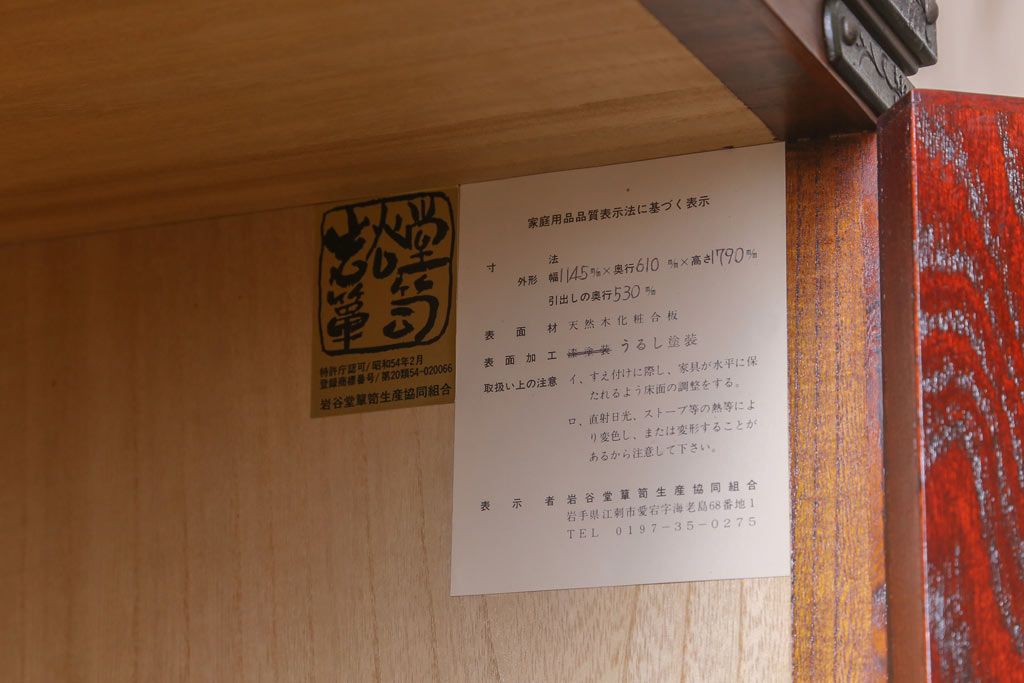 岩谷堂
簞笥
特許庁認可/昭和54年2月
登録商標番号/第20類54-020066
岩谷堂簞笥生産協同組合
家庭用品品質表示法に基づく表示
寸法
外形 幅1145㎜×奥行610㎜×高さ1790㎜
引出しの奥行530㎜
表面材 天然木化粧合板
表面加工 漆塗装 うるし塗装
取扱い上の注意 イ、すえ付けに際し、家具が水平に保
たれるよう床面の調整をする。
ロ、直射日光、ストーブ等の熱等によ
り変色し、または変形することが
あるから注意して下さい。
表示者 岩谷堂簞笥生産協同組合
岩手県江刺市愛宕字海老島68番地1
TEL 0197-35-0275